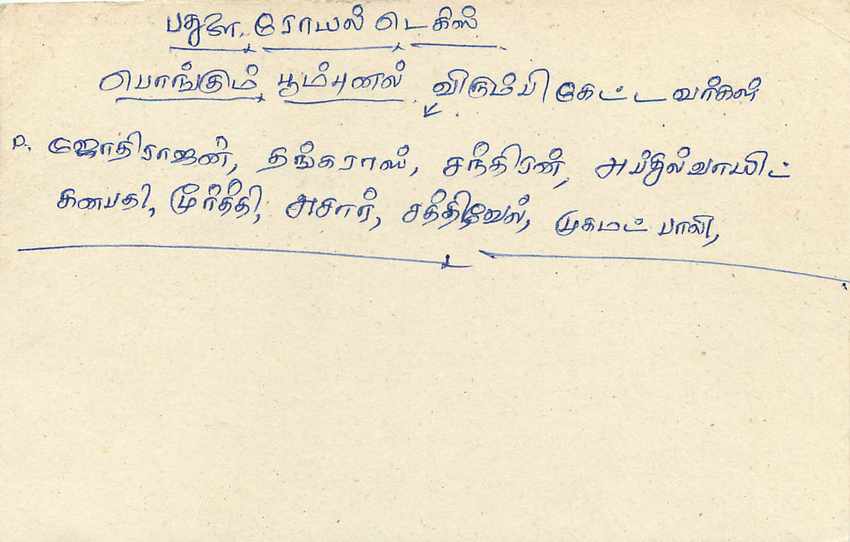 பதுளை ரோயல் டெகிஸ்
பொங்கும் பூம்புனல் விரும்பி கேட்டவர்கள்
P. ஜோதிராஜன், தங்கராஸ், சந்திரன், அப்துல்வாயிட்
கனபதி, மூர்த்தி, அசார், சத்திவேல், முகமட் பாலி,